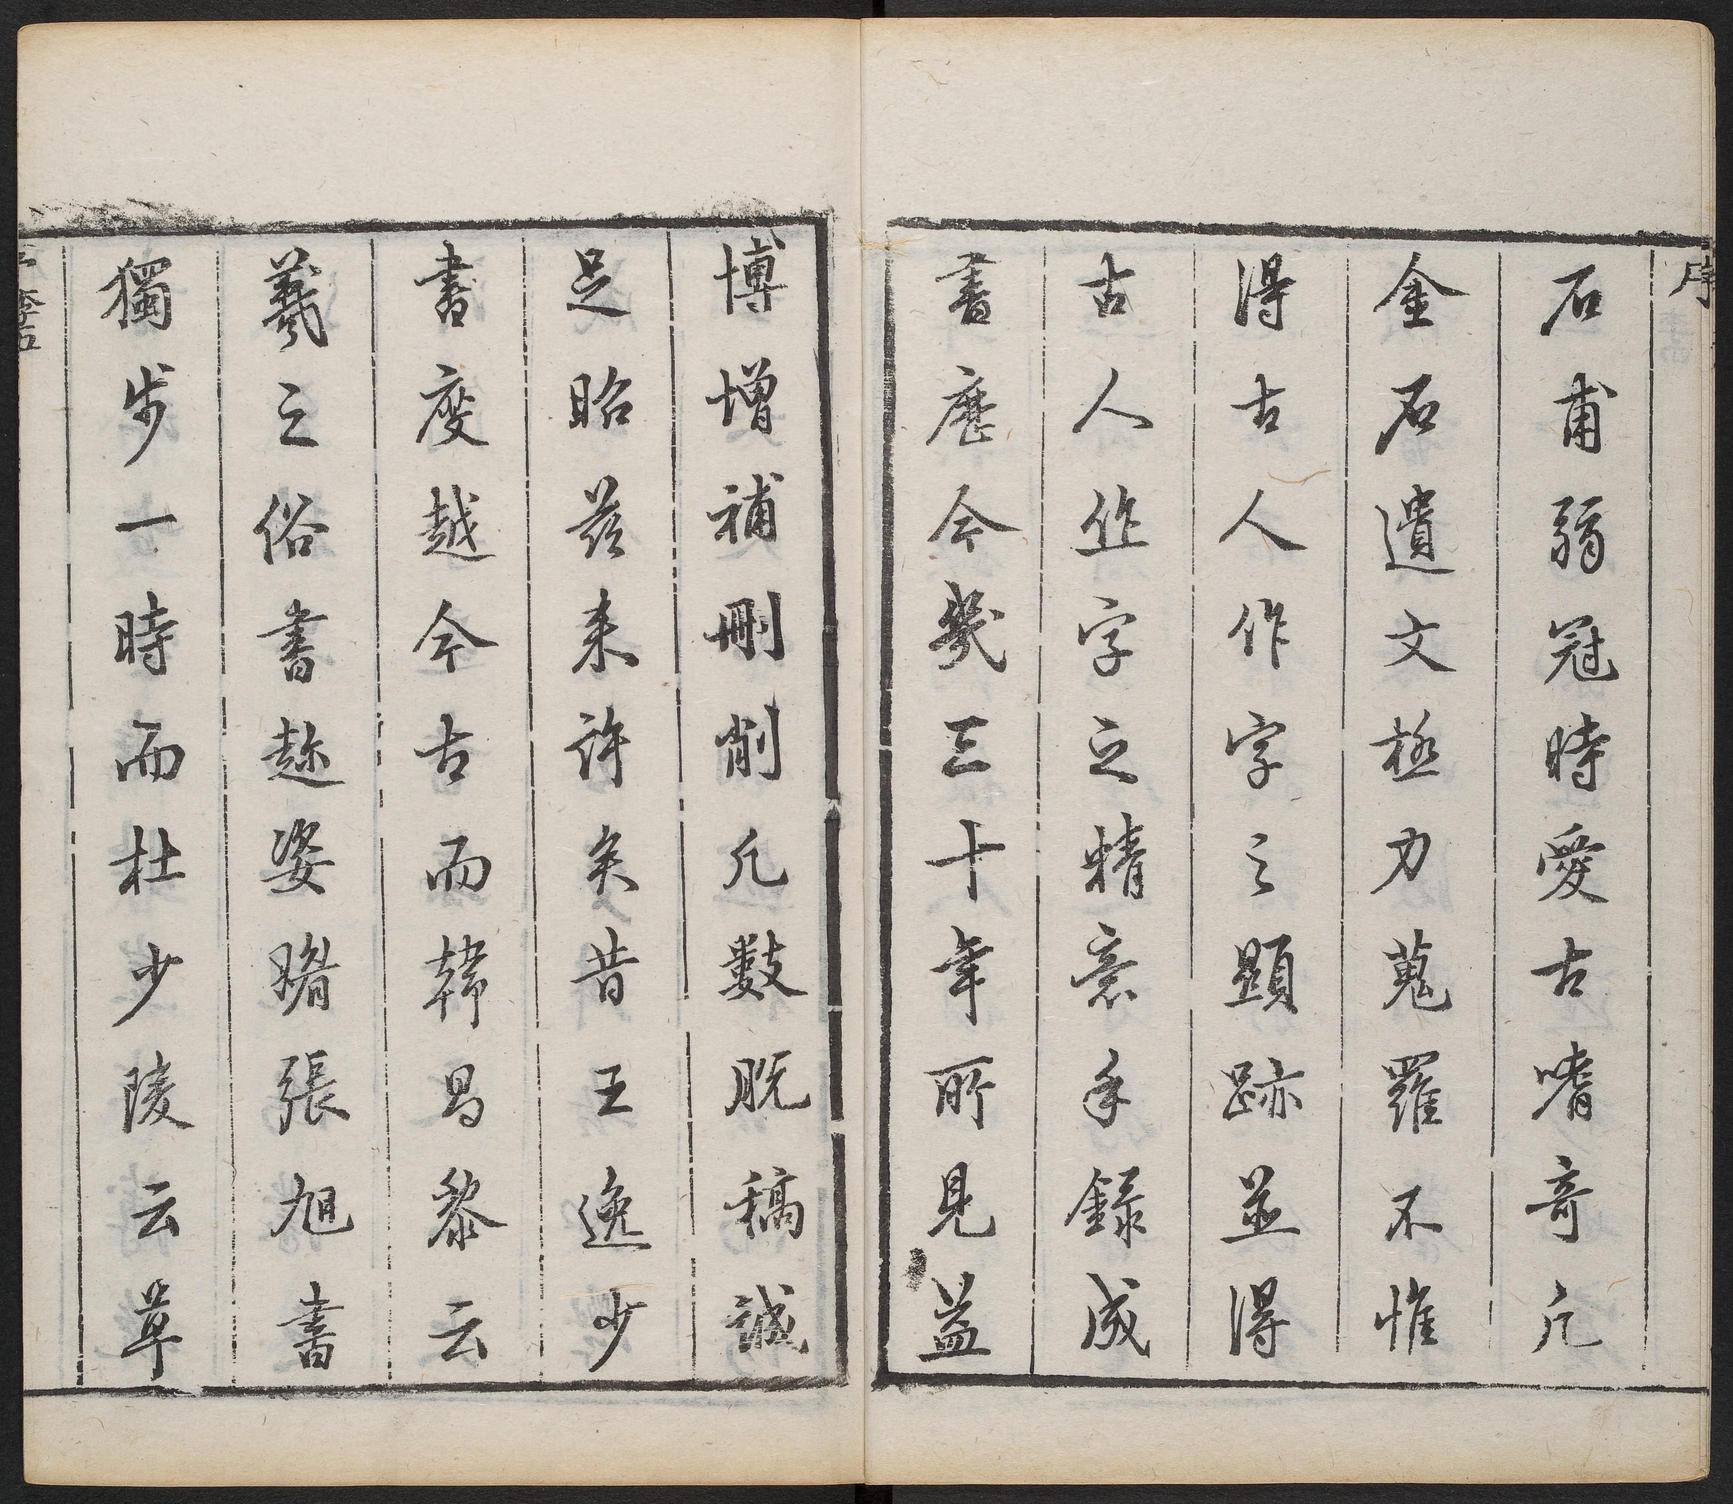 序
石甫弱冠時愛古嗜竒凡
金石遺文極力蒐羅不惟
得古人作字之顯跡並得
古人作字之精意手錄成
書歷今幾三十年所見益
博增補刪削凡數脫稿誠
足昭茲来許矣昔王逸少
書度越今古而韓昌黎云
羲之俗書趂姿媚張旭書
獨步一時而杜少陵云草